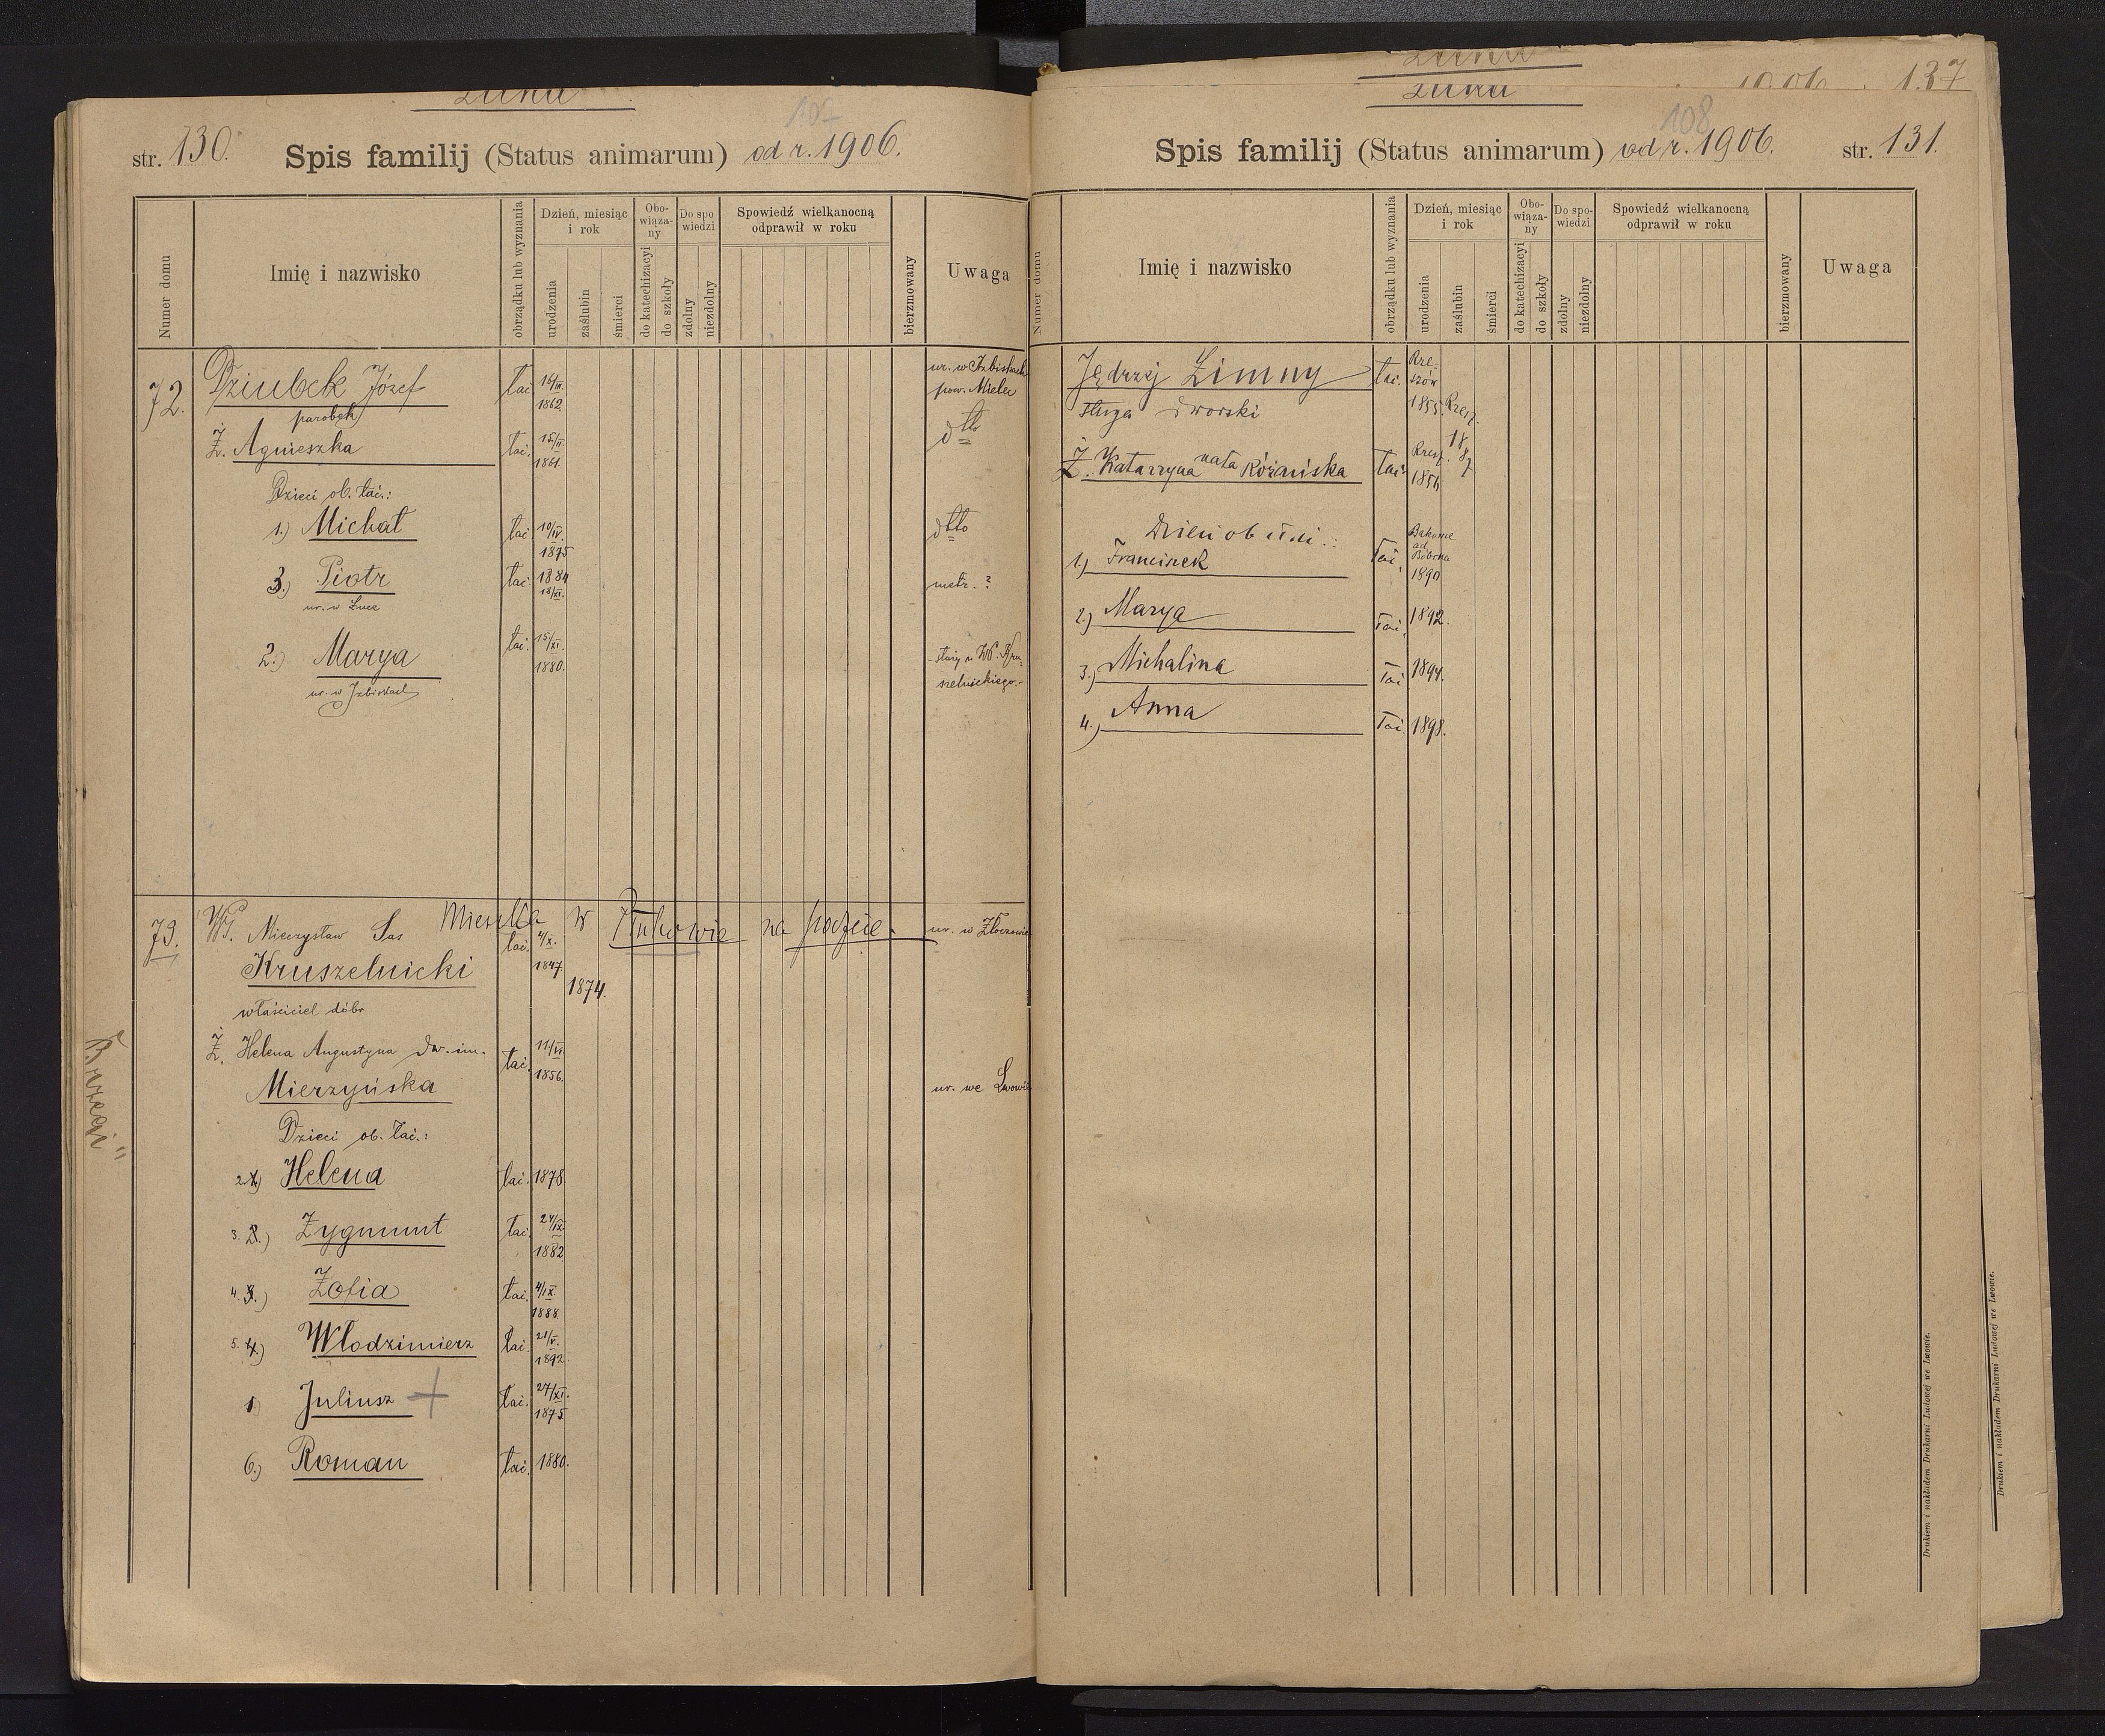 str. 130.
107
Spis familij (Status animarum) od r. 1906.
Numer domu
Imię i nazwisko
obrządku lub wyznania
Dzień, miesiąc i rok
urodzenia
zaślubin
śmierci
Obo-
wiąza-
ny
do katechizacyi
do szkoły
Do spo
wiedzi
zdolny
niezdolny
Spowiedź wielkanocną
odprawił w roku
bierzmowany
Uwaga
72. Dziubek Józef łac. 16/III. 1862. ur. w Izbiskach
parobek pow. Mielec
Ż. Agnieszka łac. 15/II 1861. dtto
Dzieci ob. łać.:
1.) Michał łać. 10/IV. 1875 dtto
3.) Piotr łać. 1884 18/XI. metr. ?
ur. w Łuce
2.) Marya łać. 15/XI. 1880. służy u Wł. Kru-
szelnickiego.
ur. w Izbiskach
73. Wł. Mieczysław Sas Mieszka w na poczcie. ur. w Złoczowie
Kruszelnicki łać. 4/X. 1847. 1874.
właściciel dóbr
Ż. Helena Augustyna dw. im. łać. 11/VI. 1856.
Mierzyńska ur. we Lwowie
Dzieci ob. łać.:
2. Helena łać. 1878.
3. 2.) Zygmunt łać. 24/IX. 1882
4. 3.) Zofia łać. 4/IX. 1888.
5. 4.) Włodzimierz łać. 21/V. 1892.
1) Juliusz + łać. 27/XI. 1875
6.) Roman łać. 1880.
"Brzegi"
1906. 137
108
Spis familij (Status animarum) od r. 1906. str. 131.
Numer domu
Imię i nazwisko
obrządku lub wyznania
Dzień, miesiąc i rok
urodzenia
zaślubin
śmierci
Obo-
wiąza-
ny
do katechizacyi
do szkoły
Do spo-
wiedzi
zdolny
niezdolny
Spowiedź wielkanocną
odprawił w roku
bierzmowany
Uwaga
Jędrzej Zimny łać. Rze-
szów
sługa dworski 1855. Rzesz. 1887
Ż. Katarzyna nata Różańska łać. Rzesz. 1856
Dzieci ob łaci.:
1.) Franciszek łać. ad Bóbrka 1890
2.) Marya łać. 1892.
3.) Michalina łać 1894.
4.) Anna łać. 1898.
Drukiem i nakładem Drukarni Ludowej we Lwowie.
Drukiem i nakładem Drukarni Ludowej we Lwowie.